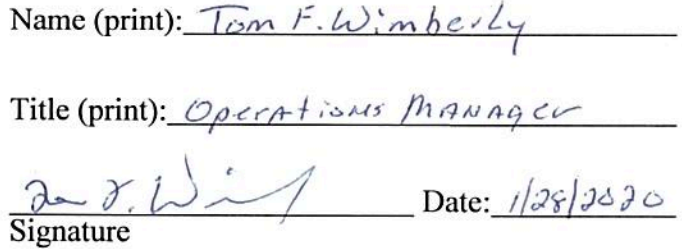 Name (print): Tom F. Wimberly
Title (print): Operations Manager
Date: 1/28/2020
Signature